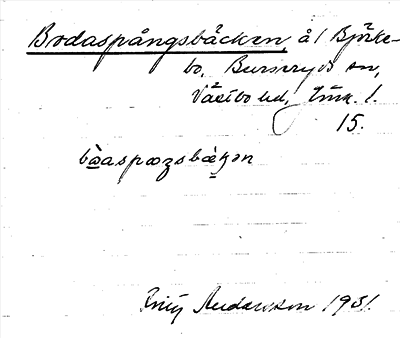 Bodaspångsbäcken, å i Björke-
bo, Burseryds sn,
Västbo hd, Jönk. l.
15.
bòaspåŋsbæ̀kən
Andersson 1931.